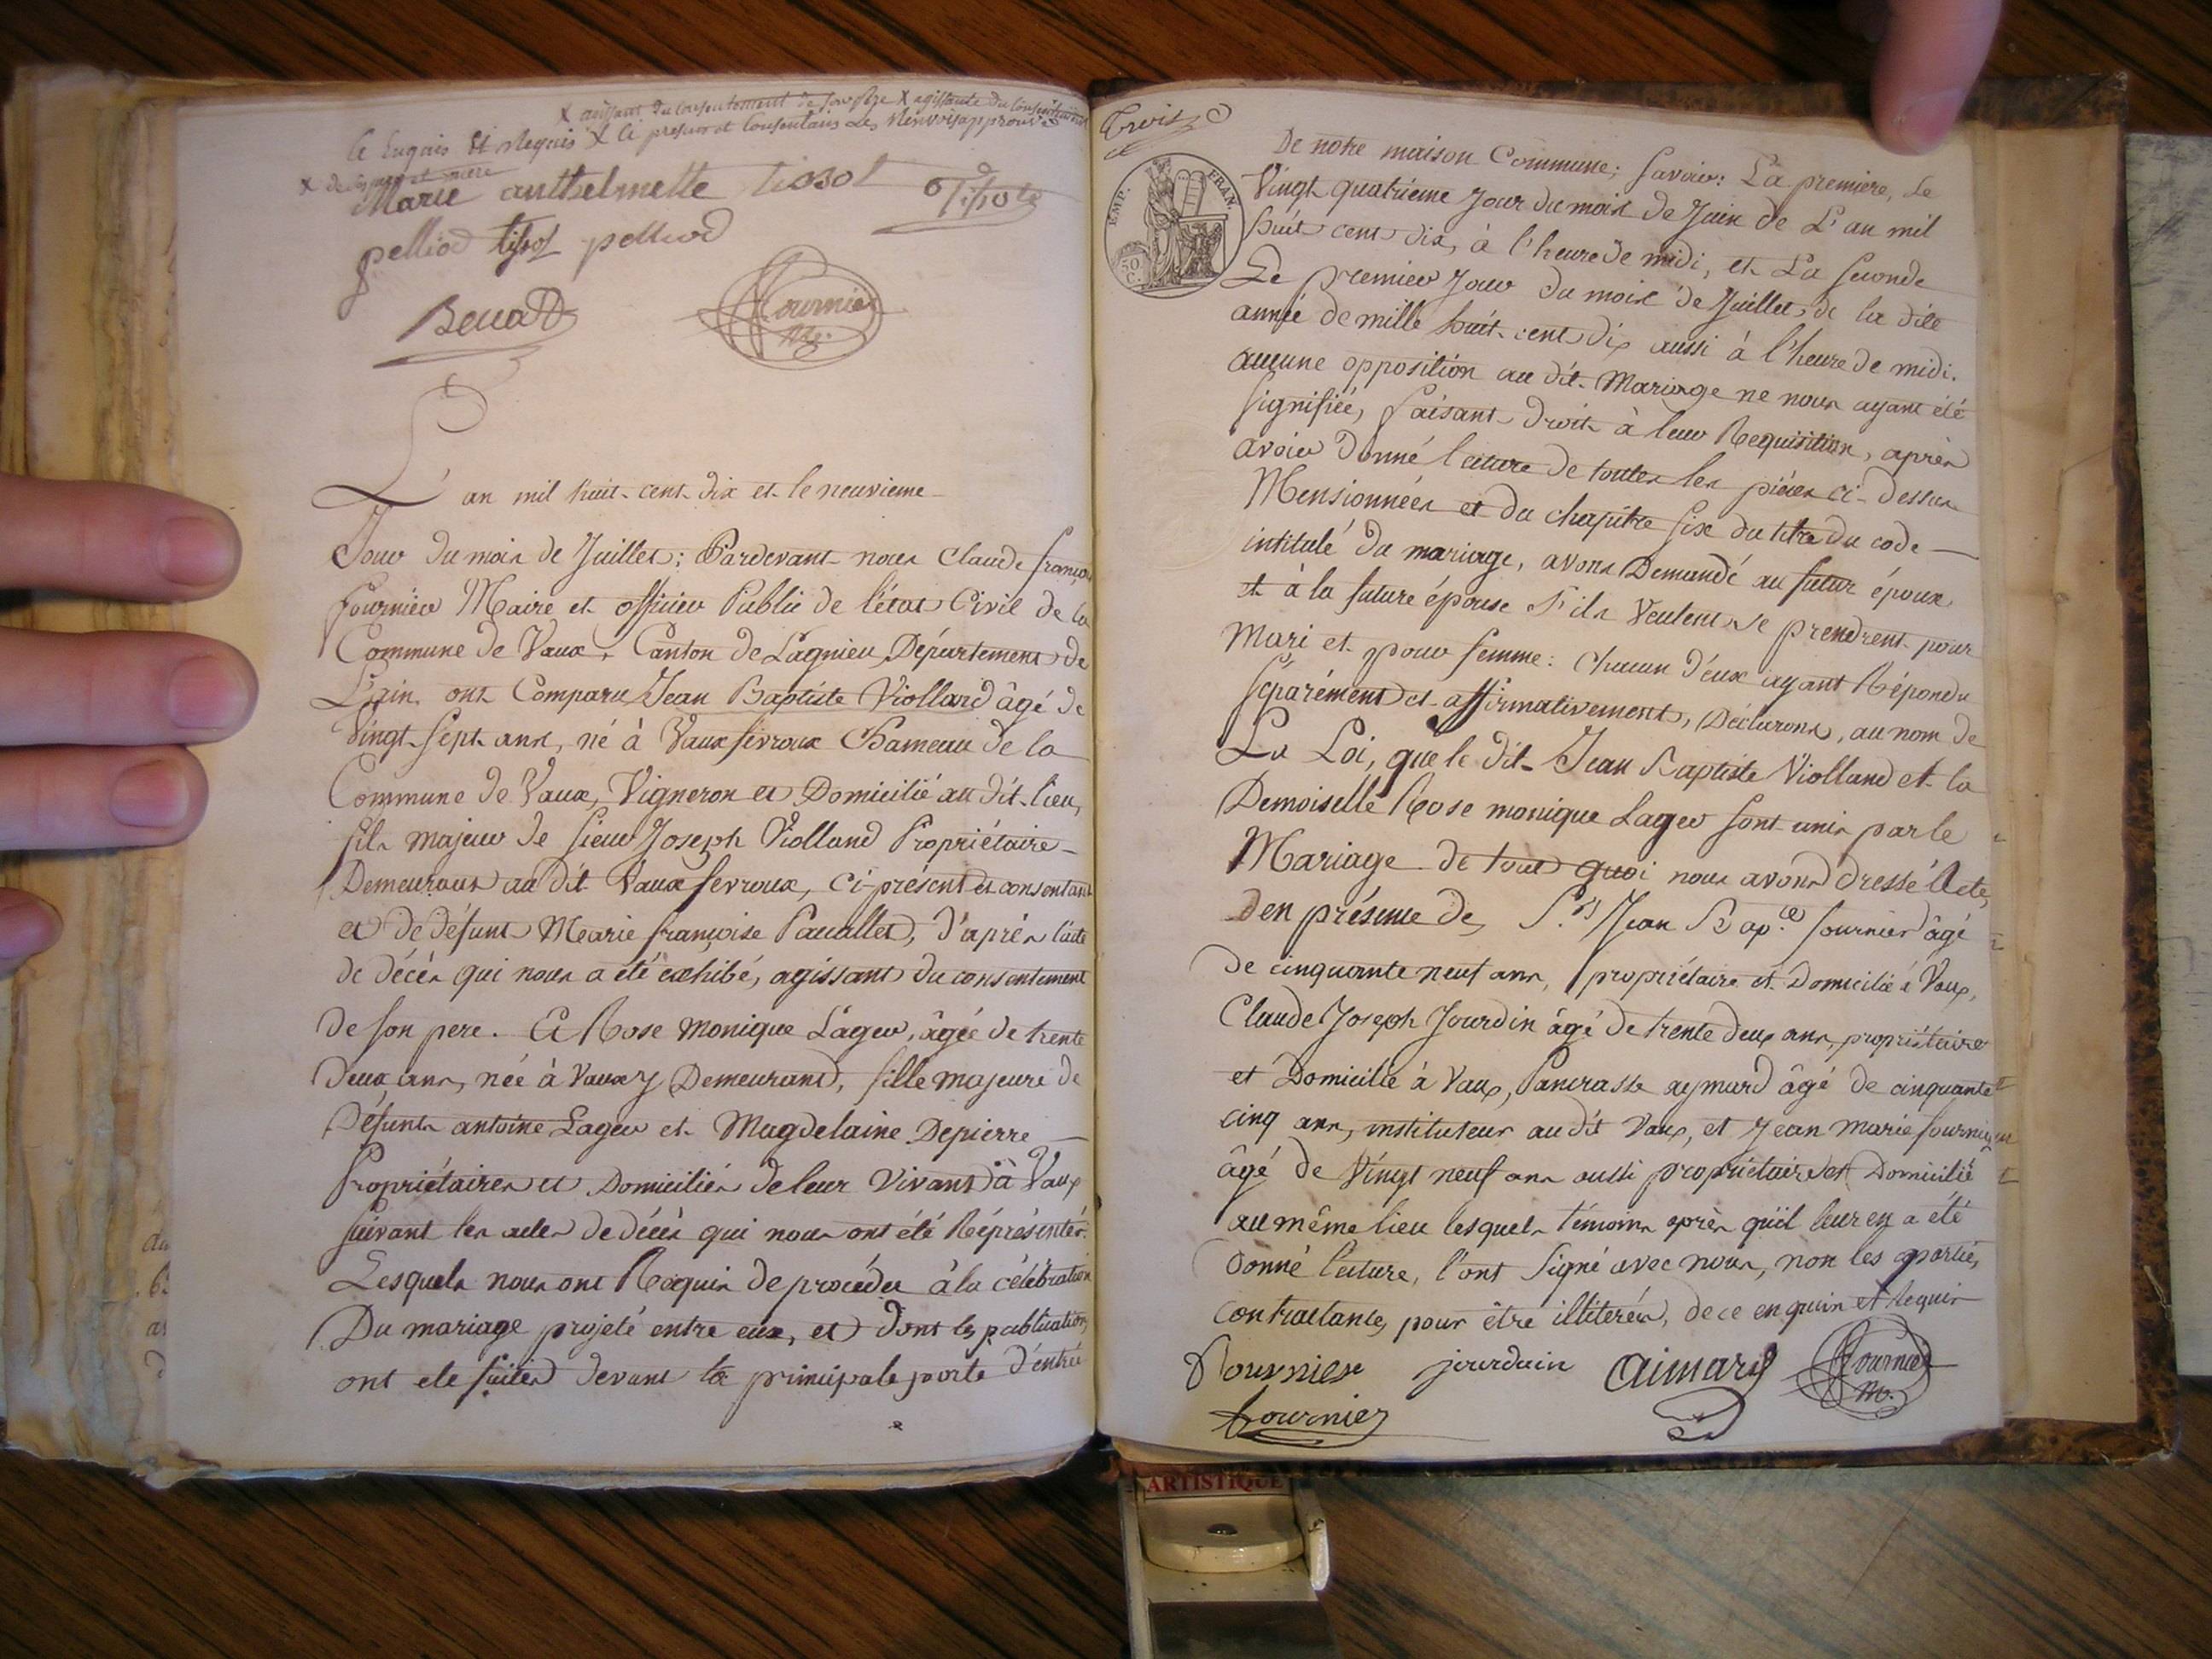 X agissant du consentement de son père X agissante du consentement
le enquis et Requis X ci présent et consentans les Renvois approuvés
X de ses père et mère
Marie anthelmette tissot
pelliod tissot pellиod
Fournier
L'an mil huit cent dix et le neuvieme
Jour du mois de Juillet; Pardevant nous Claude françois
fournier Maire et officier Public de l'état Civil de la
Commune de Vaux, Canton de Lagnieu, Département de
L'ain, ont Comparu Jean Baptiste Violland âgé de
Vingt Sept ans, né à Vaux fevroux Hameau de la
Commune de Vaux, Vigneron et Domicilié au dit lieu,
fils majeur de sieur Joseph Violland Propriétaire
Demeurant au dit Vaux fevroux, ci-présent et consentant
et de défunt Marie françoise Paucallet, d'après l'acte
de décès qui nous a été exhibé, agissant du consentement
de son pere. Et Rose monique Lager, âgée de trente
Deux ans, née à Vaux y Demeurant, fille majeure de
Défunts antoine Lager et Magdelaine Depierre
Propriétaires et Domiciliés de leur Vivant à Vaux
suivant les actes de décès qui nous ont été Réprésentés.
Lesquels nous ont Requis de procéder à la célébration
Du mariage projeté entre eux, et dont les publications
ont ete faites devant la principale porte d'entrée
Trois
EMP. FRAN.
50 C.
De notre maison Commune; Savoir: La premiere, Le
Vingt quatrieme Jour du mois de Juin de L'an mil
huit cent dix, à l'heure de midi, et La seconde
Le premier Jour du mois de Juillet de la dite
année de mille huit cent dix aussi à l'heure de midi.
aucune opposition au dit Mariage ne nous ayant été
signifiée, faisant droit à leur Requisition, après
avoir donné lecture de toutes les pièces ci-dessus
Mensionnées et du chapitre six du titre du code
intitulé du mariage, avons Demandé au futur époux
et à la future épouse s'ils Veulent se prendrent pour
Mari et pour femme: chacun d'eux ayant Répondu
séparément et affirmativement, Déclarons, au nom de
La Loi, que le dit Jean Baptiste Violland et la
Demoiselle Rose monique Lager sont unis par le
Mariage de tout quoi nous avons dressé Acte,
en présence de S.rs Jean Bap.te fournier âgé
de cinquante neuf ans, propriétaire et Domicilié à Vaux,
Claude Joseph Jourdin âgé de trente deux ans, propriétaire
et Domicilié à Vaux, Pancrasse aymard âgé de cinquante
cinq ans, instituteur au dit Vaux, et Jean marie fournier
âgé de Vingt neuf ans aussi propriétaire et Domicilié
au même lieu lesquels témoins après qu'il leur en a été
donné lecture, l'ont signé avec nous, non les parties
contractantes pour être illitérées, de ce enquis et requis
Fournier jourdain aimard Fournier
M.
fournier
ARTISTIQUE